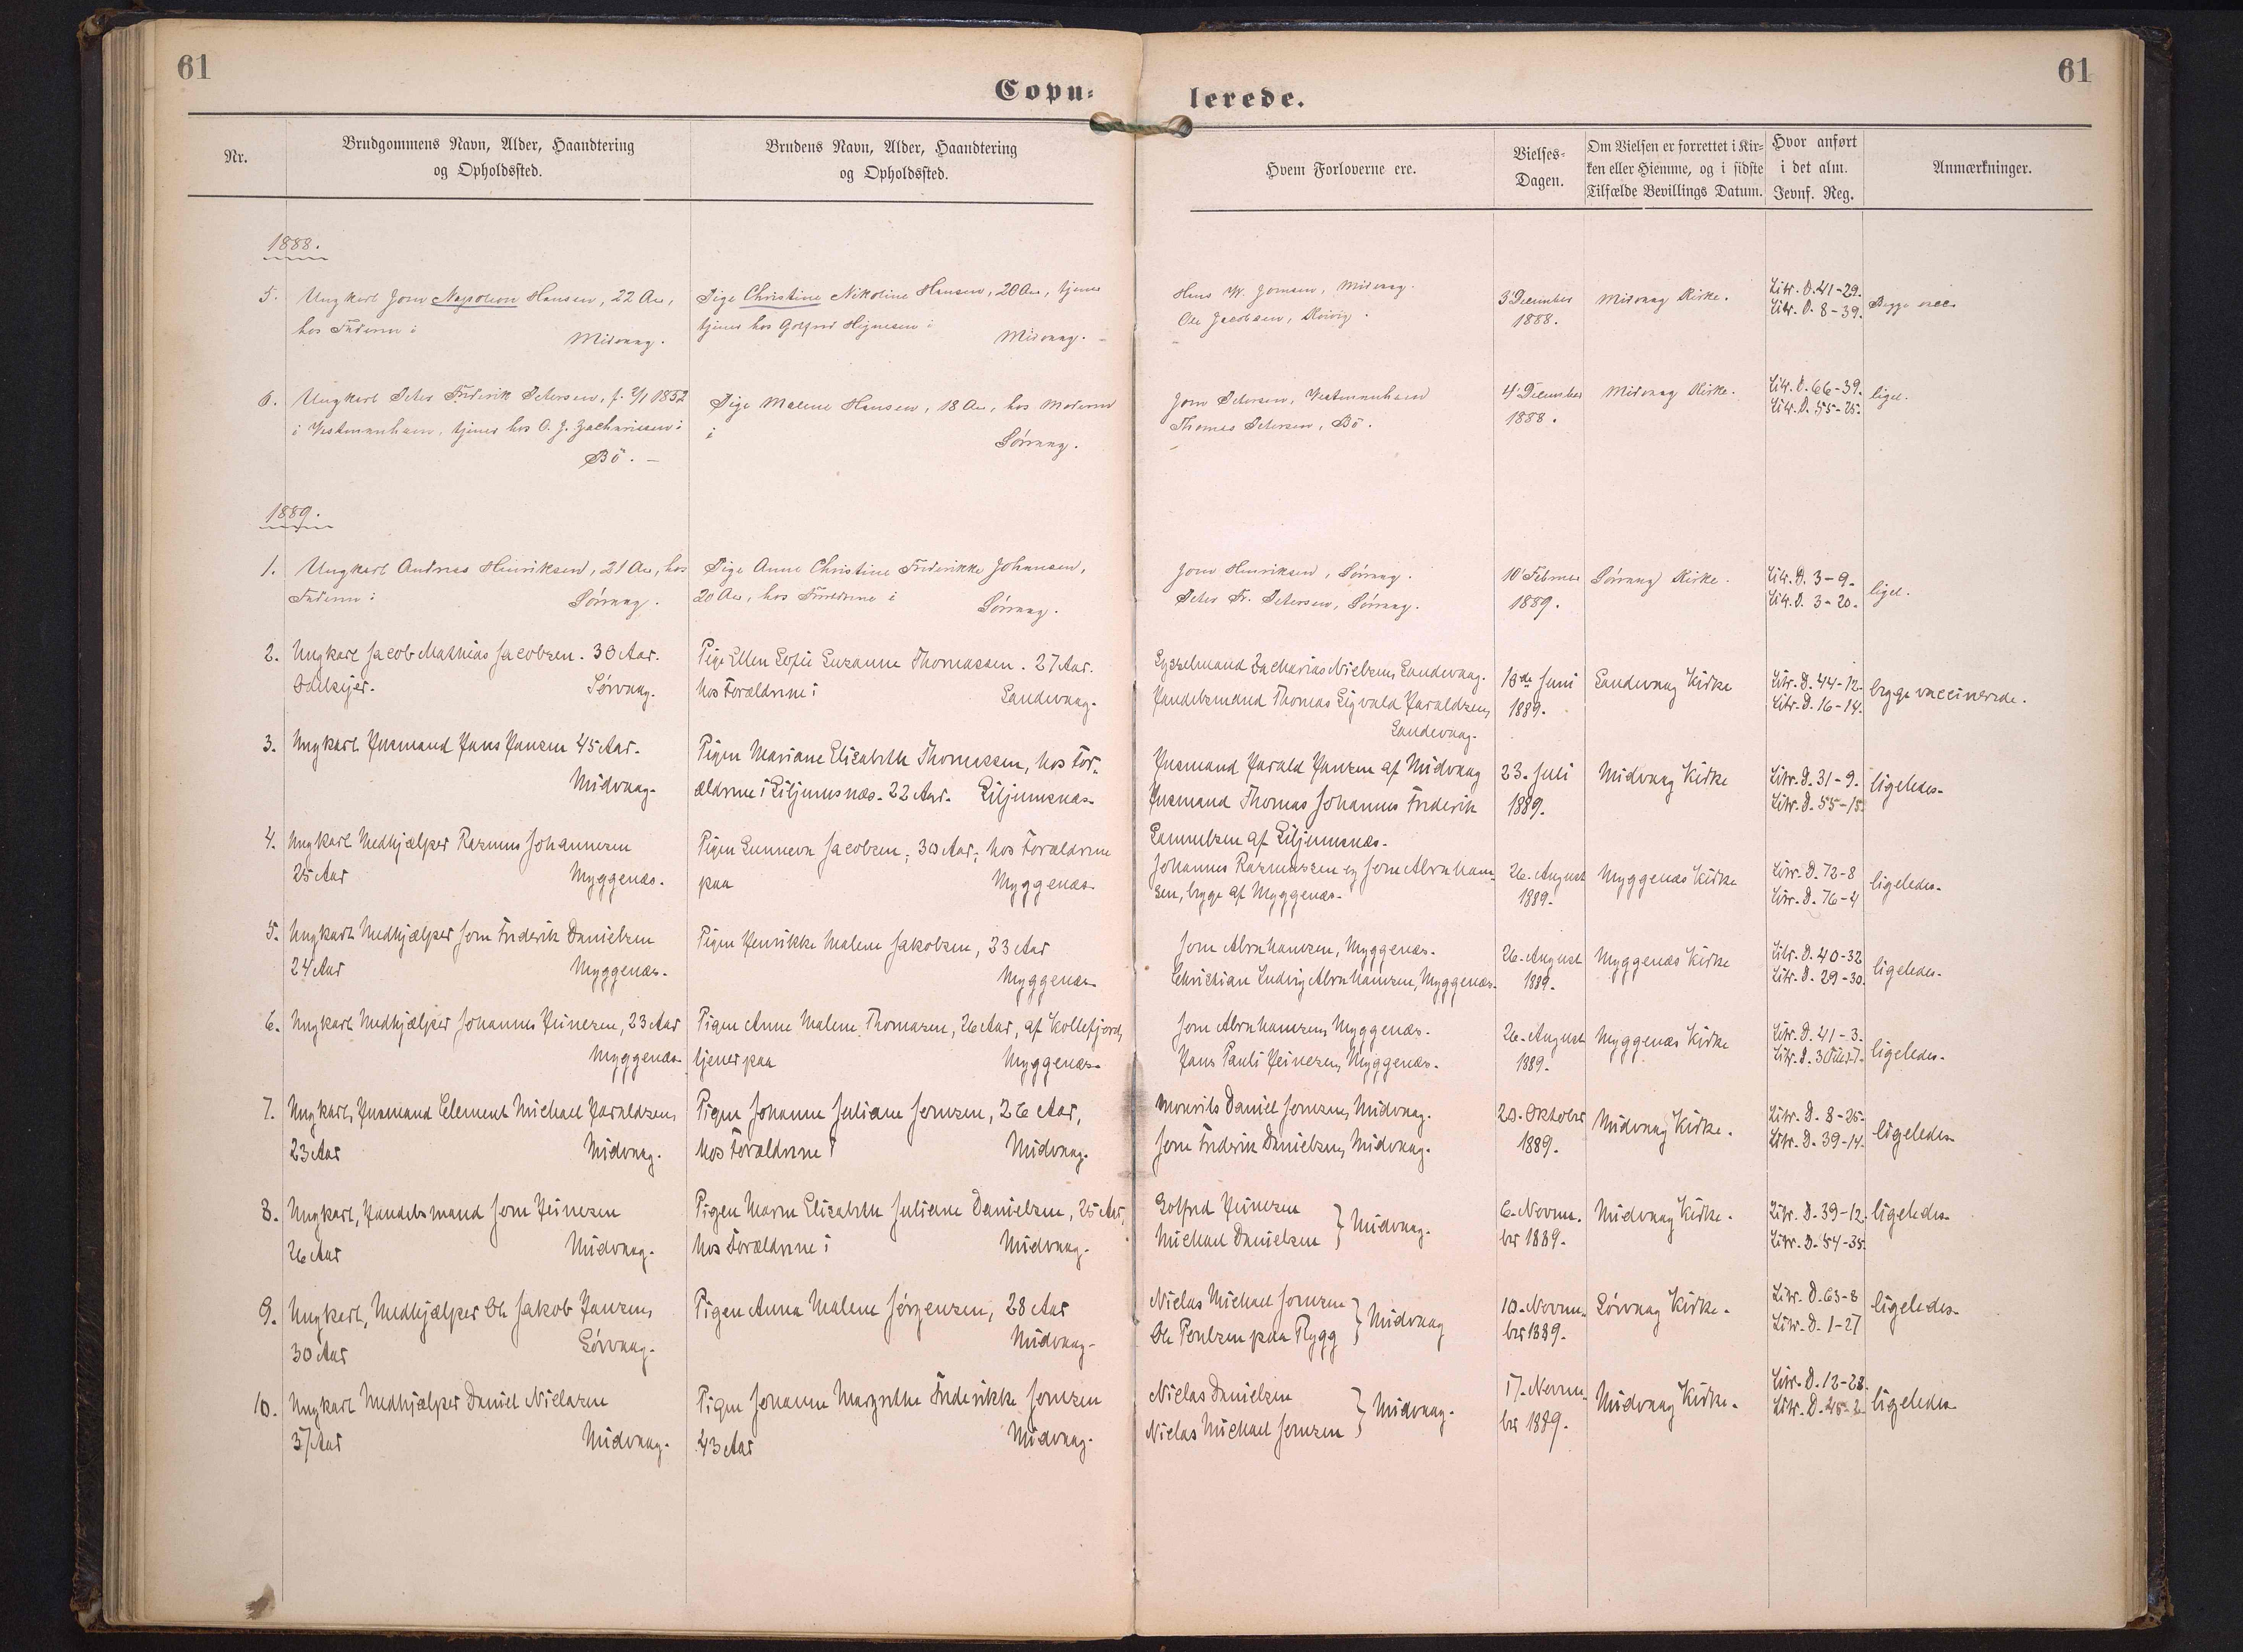 61
61
Copu=
lerede.
Nr.
Brudgommens Navn, Alder, Haandtering
og Opholdssted.
Brudens Navn, Alder, Haandtering
og Opholdssted.
Hvem Forloverne ere.
Vielses-
Dagen.
Om Vielsen er forrettet i Kir-
ken eller Hiemme, og i sidste
Tilfælde Bevillings Datum.
Hvor anført
i det alm.
Jevnf. Reg.
Anmærkninger.
1888.
5.
Ungkarl Jonn Napoleon Hansen, 22 Aar,
hos Faderen i
Midvaag.
Pige Christine Nikoline Hansen, 20 Aar, tjener
tjener hos Golfred i
Midvaag.
Hans W. Jomsen, Midvaag.
Ole Jacobsen,
3 December
1888.
Midvaag Kirke.
Litr. D. 41-29.
Litr. D. 8-39.
Begge vacc.
6.
Ungkarl Peter Frederik Petersen, f. 2/1 1852
i Vestmanhavn, tjener hos O. J. Zachariasen i
Bö. -
Pige Malene Hansen, 18 Aar, hos Moderen
i
Sörvaag.
Jonn Petersen, Vestmanhavn
Thomas Petersen, Bö.
4 December
1888.
Midvaag Kirke.
Litr. D. 66-39.
Litr. D. 55-25.
ligel.
1889.
1.
Ungkarl Andreas Henriksen, 21 Aar, hos
Faderen i
Sörvaag.
Pige Anne Christine Frederikke Johansen,
20 Aar, hos Forældrene i
Sörvaag.
Jonn Henriksen, Sörvaag.
Peter Fr. Petersen, Sörvaag.
10 Februar
1889.
Sörvaag Kirke.
Litr. D. 3-9.
Litr. D. 3-20.
ligel.
2.
Ungkarl Jacob Mathias Jacobsen. 30 Aar.
Odelsejer.
Sörvaag.
Pige Ellen Sofie Susanne Thomassen. 27 Aar.
hos Forældrene i
Sandevaag.
Sysselmand Zacharias Nielsen, Sandevaag.
Handelsmand Thomas Sigvald Haraldsen,
Sandevaag.
10de Juni
1889.
Sandevaag Kirke
Litr. D. 44-12.
Litr. D. 16-14.
begge vaccinerede.
3.
Ungkarl Husmand Hans Hansen 45 Aar.
Midvaag.
Pigen Mariane Elisabeth Thomassen, hos For-
ældrene i Siljumsnæs. 22 Aar. Siljumsnæs.
Husmand Harald Hansen af Midvaag
Husmand Thomas Johannes Frederik
Samuelsen af Siljumsnæs.
23. Juli
1889.
Midvaag Kirke
Litr. D. 31-9.
Litr. D. 55-15.
ligeledes.
4.
Ungkarl Medhjælper Rasmus Johannesen
25 Aar
Myggenæs.
Pigen Sunneva Jacobsen, 30 Aar, hos Forældrene
paa
Myggenæs
Johannes Rasmussen og Jonn Abraham-
sen, begge af Myggenæs.
26. August
1889.
Myggenæs Kirke
Litr. D. 72-8
Litr. D. 76-4
ligeledes.
5.
Ungkarl Medhjælper Jonn Frederik Danielsen
24 Aar
Myggenæs.
Pigen Henrikke Malene Jakobsen, 33 Aar
Myggenæs
Jonn Abrahamsen, Myggenæs.
Christian Ludvig Abrahamsen, Myggenæs.
26. August
1889.
Myggenæs Kirke
Litr. D. 40-32
Litr. D. 29-30
ligeledes.
6.
Ungkarl Medhjælper Johannes Heinesen, 23 Aar
Myggenæs.
Pigen Anne Malene Thomasen, 26 Aar, af Kollefjord,
tjener paa
Myggenæs
Jonn Abrahamsen, Myggenæs.
Hans Pauli Heinesen, Myggenæs.
26. August
1889.
Myggenæs Kirke
Litr. D. 41-3.
ligeledes.
7.
Ungkarl, Husmand Clement Michael Haraldsen,
23 Aar
Midvaag.
Pigen Johanne Juliane Jomsen, 26 Aar,
hos Forældrene i
Midvaag.
Mourits Daniel Jomsen, Midvaag.
Jonn Frederik Danielsen, Midvaag.
20. Oktober
1889.
Midvaag Kirke.
Litr. D. 8-25.
Litr. D. 39-14.
ligeledes
8.
Ungkarl, Handelsmand Jonn Heinesen
26 Aar
Midvaag.
Pigen Maren Elisabeth Juliane Danielsen, 25 Aar,
hos Forældrene i
Midvaag.
Golfred Heinesen
Michael Danielsen } Midvaag.
6. Novem-
ber 1889.
Midvaag Kirke.
Litr. D. 39-12.
Litr. D. 54-35.
ligeledes
9.
Ungkarl, Medhjælper Ole Jakob Hansen,
30 Aar
Sörvaag.
Pigen Anna Malene Jörgensen, 28 Aar
Midvaag.
Niclas Michael Jomsen
Ole Poulsen paa Rygg } Midvaag
10. Novem-
ber 1889.
Sörvaag Kirke.
Litr. D. 63-8
Litr. D. 1-27
ligeledes
10.
Ungkarl Medhjælper Daniel Niclasen
37 Aar
Midvaag.
Pigen Johanne Margrethe Frederikke Jomsen
43 Aar
Midvaag.
Niclas Danielsen
Niclas Michael Jomsen } Midvaag.
17. Novem-
ber 1889.
Midvaag Kirke.
Litr. D. 12-28.
Litr. D. 45-2.
ligeledes